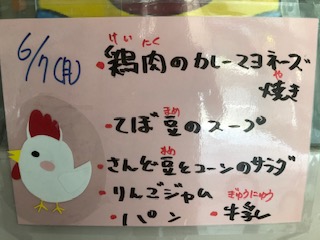 6/7(月)
けい にく
・鶏肉のカレーマヨネーズ
や
焼き
まめ
・てぼ豆のスープ
まめ
・さんど豆とコーンのサラダ
・りんごジャム
ぎゅうにゅう
・パン ・牛乳